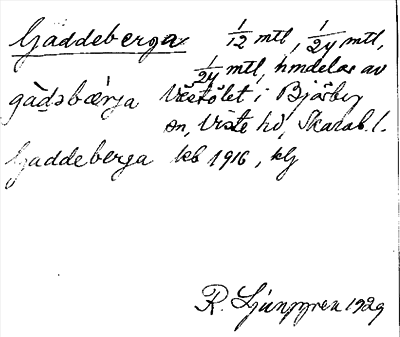 Gaddeberga 1/12 mtl, 1/24 mtl,
1/24 mtl, hmdelar av
gàdsbærja Västölet i Bjärby
sn, Viste hd, Skarab. l.
Gaddeberga kb 1916, klj
R. Ljunggren 1929